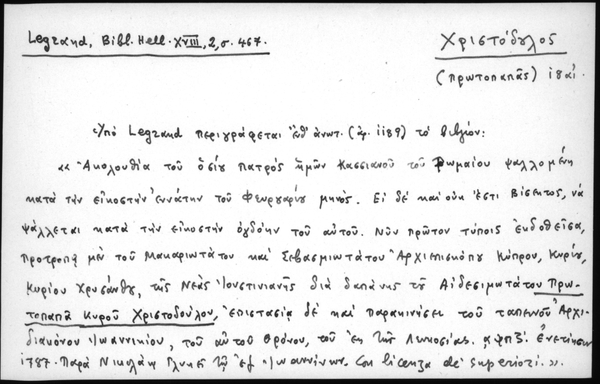 Legrand, Bibl. Hell. XVIII, 2, σ. 467.
Χριστόδουλος
(πρωτοπαπᾶς) 18 αἰ.
Ὑπό Legrand περιγράφεται ἔνθ' ἀνωτ. (ἀρ. 1189) τό βιβλίον:
«Ἀκολουθία τοῦ ὁσίου πατρός ἡμῶν Κασσιανοῦ τοῦ Ῥωμαίου ψαλλομένη
κατά τήν εἰκοστήν ἐννάτην τοῦ Φευρουαρίου μηνός. Εἰ δέ καί οὐκ ἔστι βίσεκτος, νά
ψάλλεται κατά τήν εἰκοστήν ὀγδόην τοῦ αὐτοῦ. Νῦν πρῶτον τύποις ἐκδοθεῖσα,
προτροπῇ μέν τοῦ Μακαριωτάτου καί Σεβασμιωτάτου Ἀρχιεπισκόπου Κύπρου, Κυρίου,
Κυρίου Χρυσάνθου, τῆς Νέας Ἰουστινιανῆς διά δαπάνης τοῦ Αἰδεσιμωτάτου Πρω-
τοπαπᾶ Κυροῦ Χριστοδούλου, ἐπιστασίᾳ δέ καί παρακινήσει τοῦ ταπεινοῦ Ἀρχι-
διακόνου Ἰωαννικίου, τοῦ αὐτοῦ θρόνου, τοῦ ἐκ τῆς Λευκωσίας. αψπζ'. Ἐνετίῃσιν
1787. Παρά Νικολάῳ Γλυκεῖ τῷ ἐξ Ἰωαννίνων. Con licenza de' superiori.».